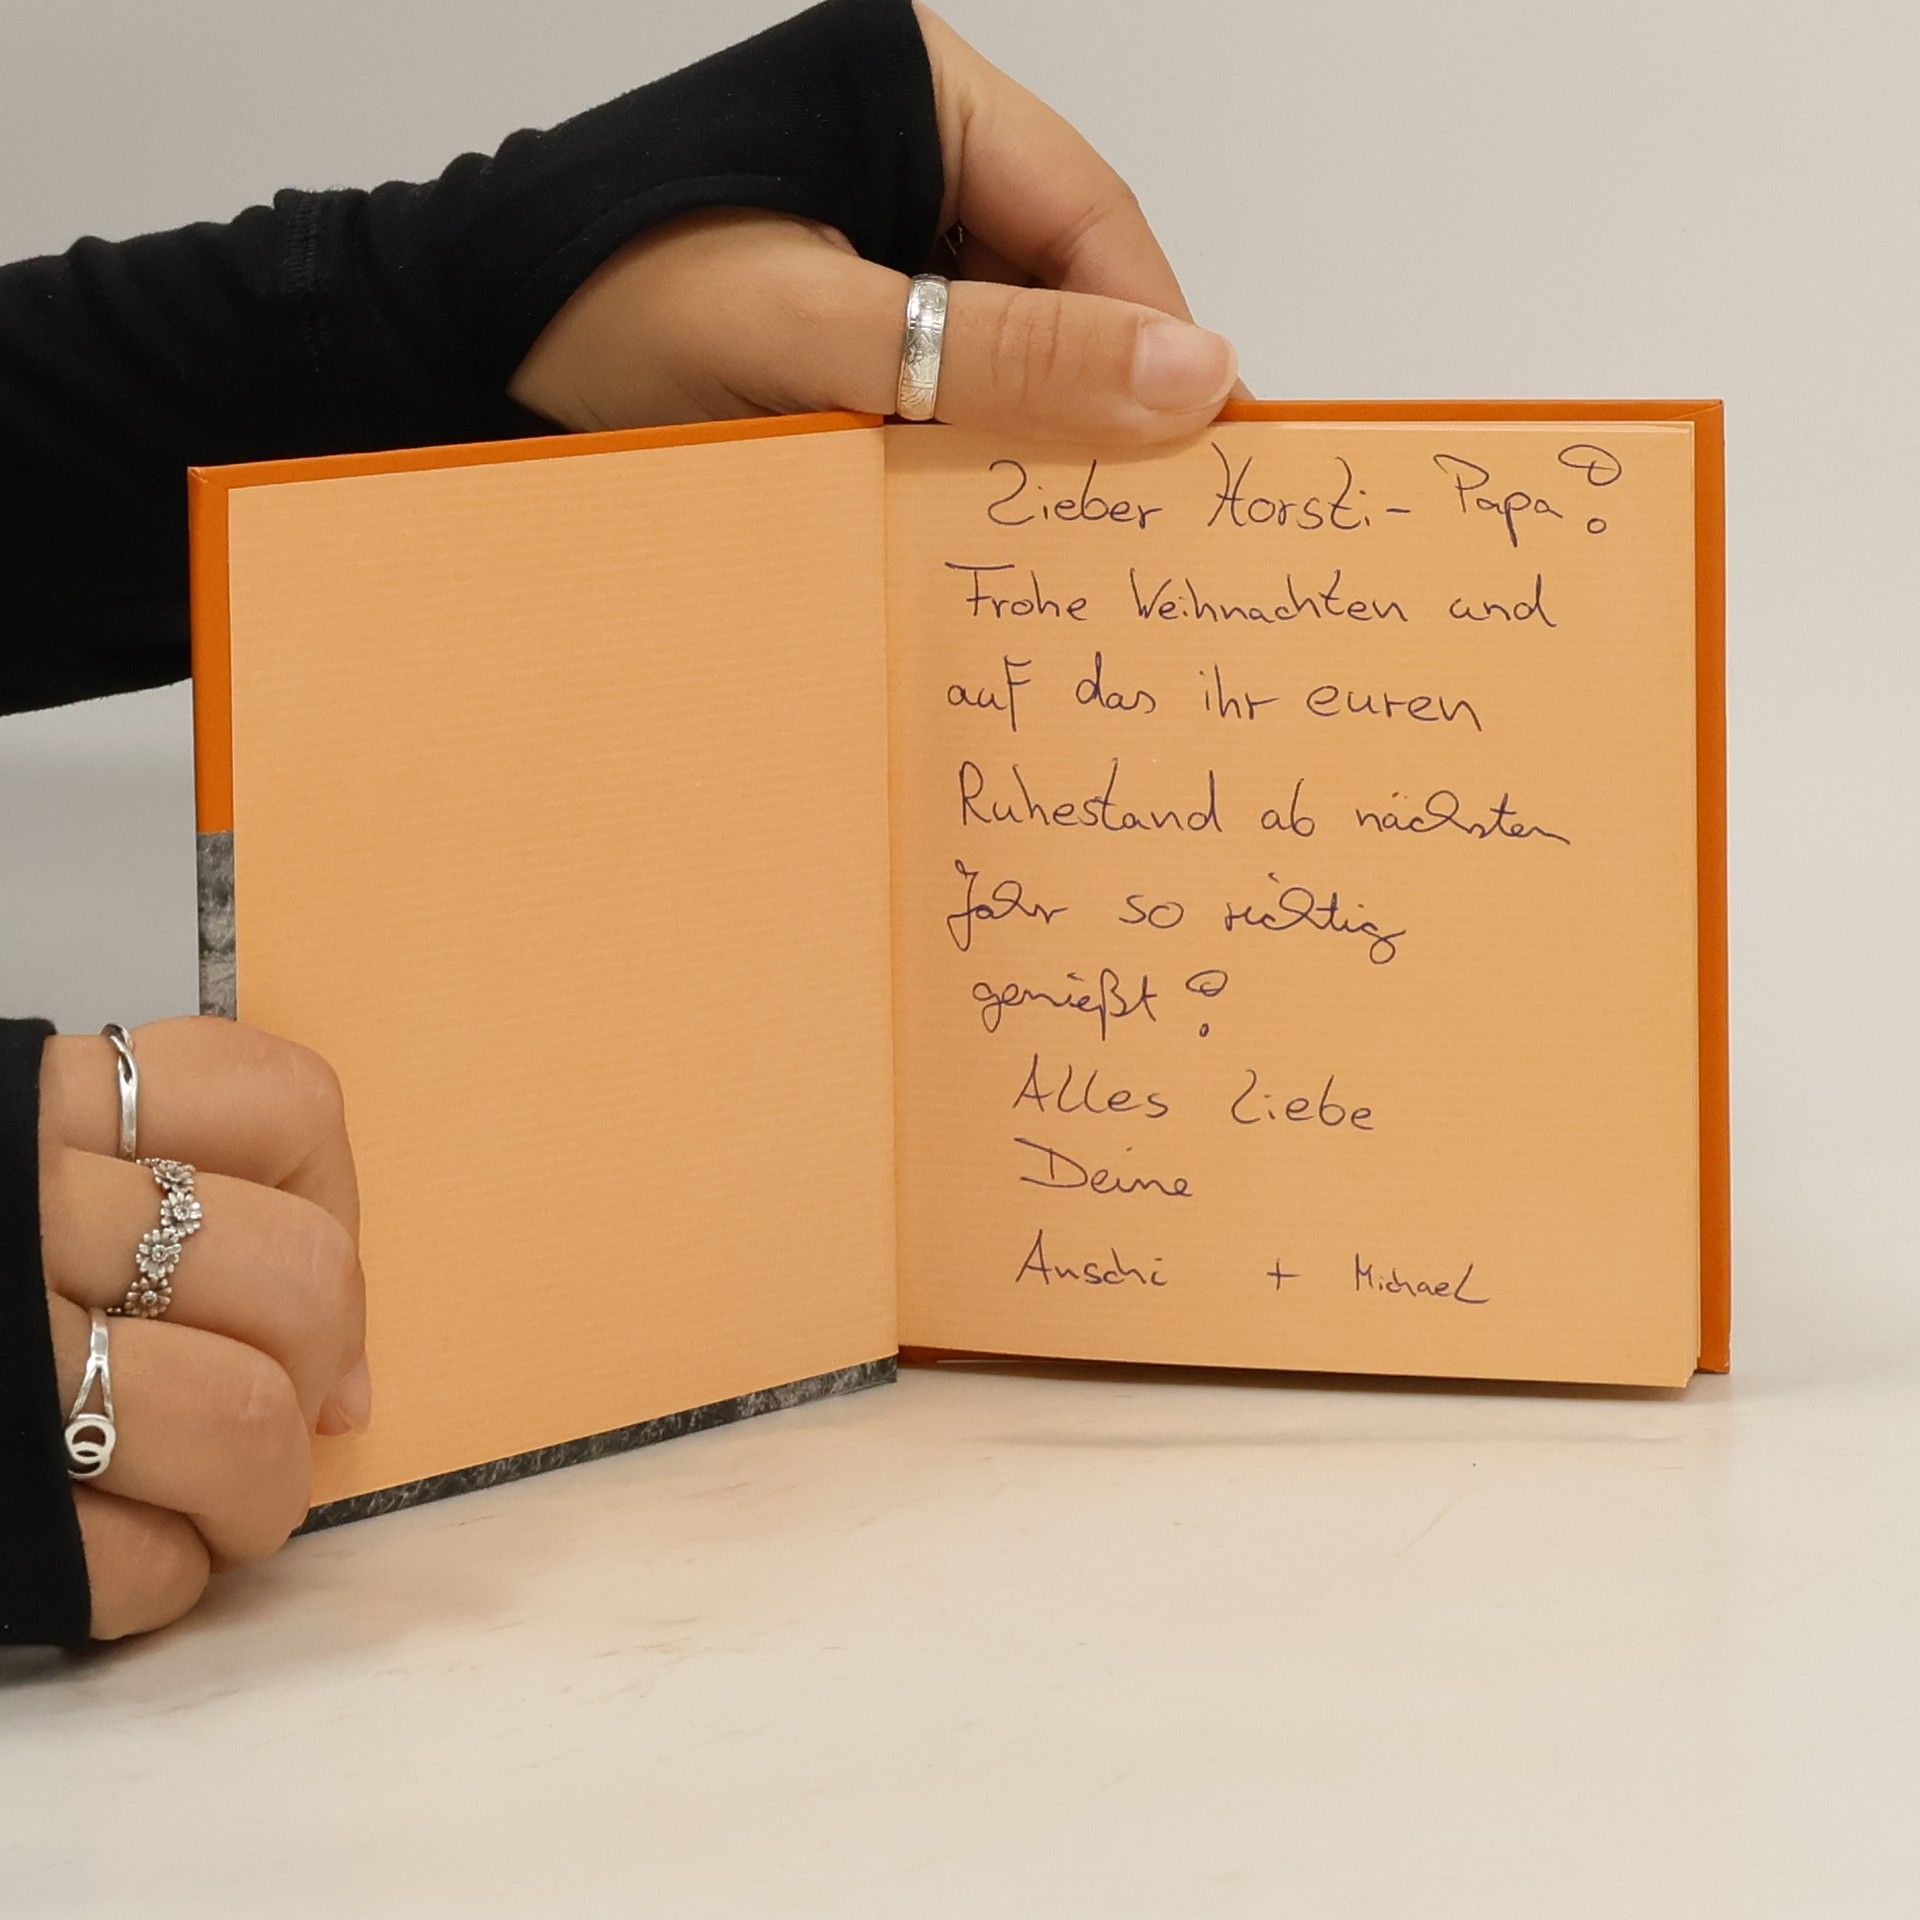 Lieber Horsti- Papa!
Frohe Weihnachten und
auf das ihr euren
Ruhestand ab nächsten
Jahr so richtig
genießt!
Alles Liebe
Deine
Anschi + Michael